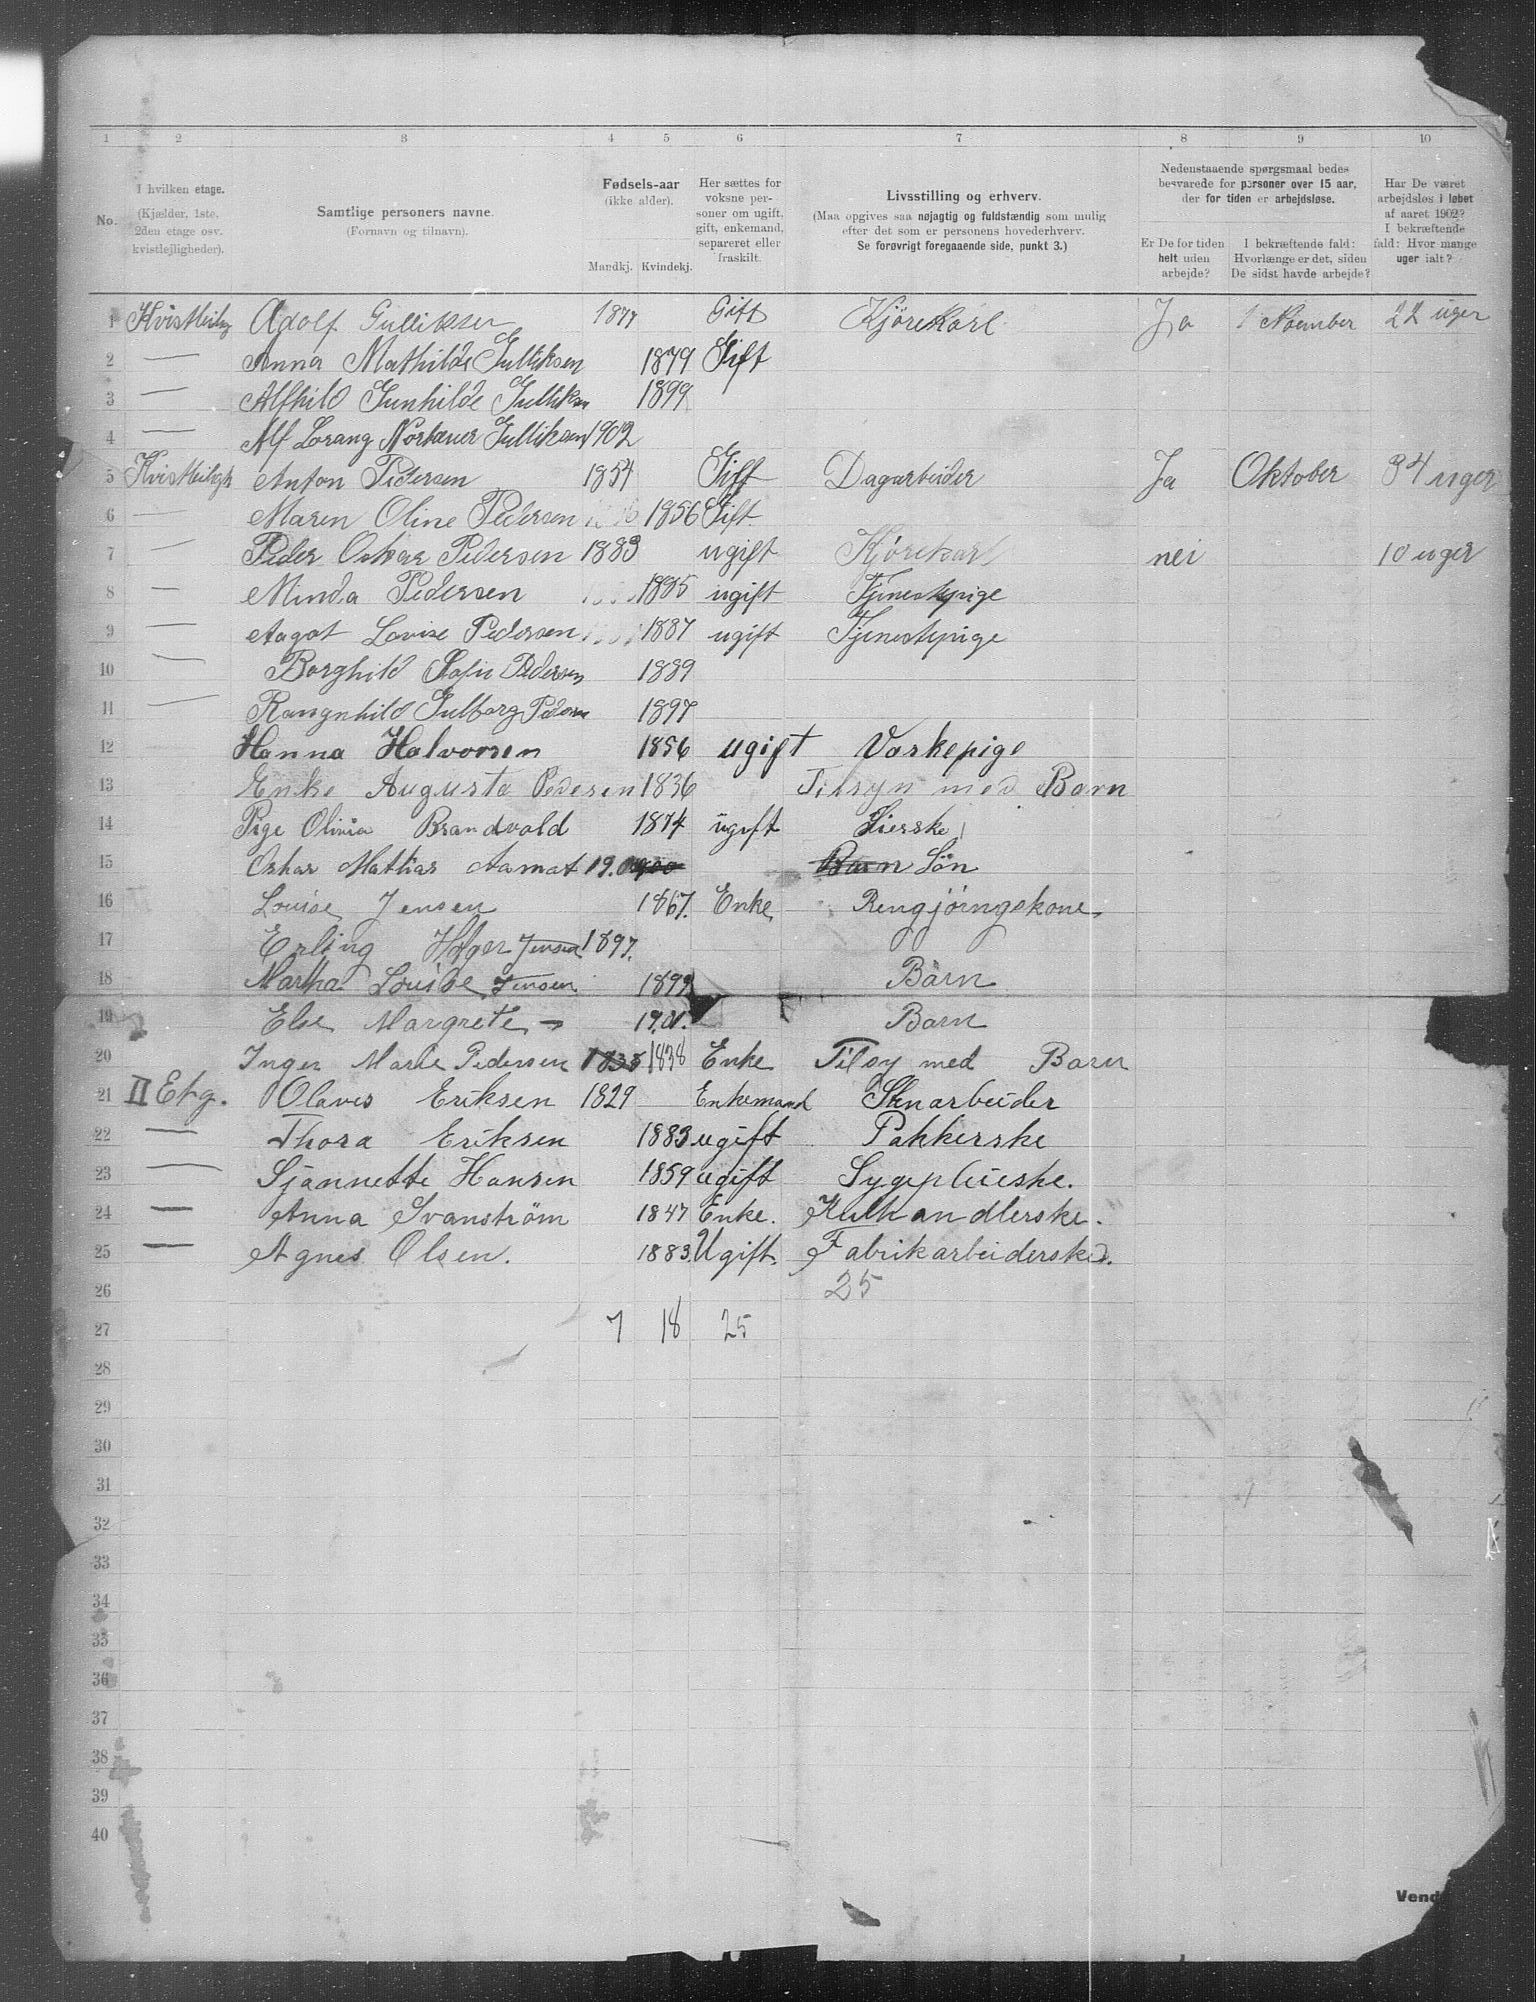 1 2 3 4 5 6 7 8 9 10
No.
I hvilken etage.
(Kjælder, 1ste, 2den etage osv. kvistlejligheder).
Samtlige personers navne.
(Fornavn og tilnavn).
Fødsels-aar
(ikke alder).
Mandkj. Kvindekj.
Her sættes for voksne personer om ugift, gift, enkemand, separeret eller fraskilt.
Livsstilling og erhverv.
(Maa opgives saa nøjagtig og fuldstændig som mulig efter det som er personens hovederhverv.
Se forøvrigt foregaaende side, punkt 3.)
Nedenstaaende spørgsmaal bedes besvarede for personer over 15 aar, der for tiden er arbejdsløse.
Er De for tiden helt uden arbejde?
I bekræftende fald: Hvorlænge er det, siden De sidst havde arbejde?
Har De været arbejdsløs i løbet af aaret 1902? I bekræftende fald: Hvor mange uger ialt?
1 Adolf Gulliksen 1877 Gift Kjørekarl Ja 1 November 22 uger
2 — Anna Mathilde Gulliksen 1879 Gift
3 — Alfhild Gunhilde Gulliksen 1899
4 — Alf Lorang Gulliksen 1902
5 Anton Pedersen 1854 Gift Dagarbeider Ja Oktober 34 uger
6 — Maren Oline Pedersen 1856 Gift
7 — Peder Oskar Pedersen 1883 ugift Kjørekarl nei 10 uger
8 — Minda Pedersen 1885 ugift Tjenestepige
9 — Aagot Lovise Pedersen 1887 ugift Tjenestepige
10 — Borghild Sofie Pedersen 1889
11 — Rangnhild Gulborg Pedersen 1897
12 Hanna Halvorsen 1856 ugift Vaskepige
13 Enke Augusta Pedersen 1836 Tilsyn med Barn
14 Pige Olivia Brandvold 1874 ugift
15 Oskar Mathias Aamot 1900 Barn Søn
16 Louise Jensen 1867. Enke Rengjøringskone
17 Erling Holger Jensen 1897.
18 Martha Louise Jensen 1899 Barn
19 Else Margrete — 1901. Barn
20 Inger Marie Pedersen 1835 1838 Enke Tilsy med Barn
21 II Etg. Olaves Eriksen 1829 Enkemand Stenarbeider
22 — Thora Eriksen 1883 ugift Pakkerske
23 — Sjannette Hansen 1859 ugift Sygepleieske.
24 — Anna Svanström 1847 Enke. Kulhandlerske.
25 — Agnes Olsen. 1883. Ugift. Fabrikarbeiderske.
26 25
27 7 18 25
28
29
30
31
32
33
34
35
36
37
38
39
40
Vend